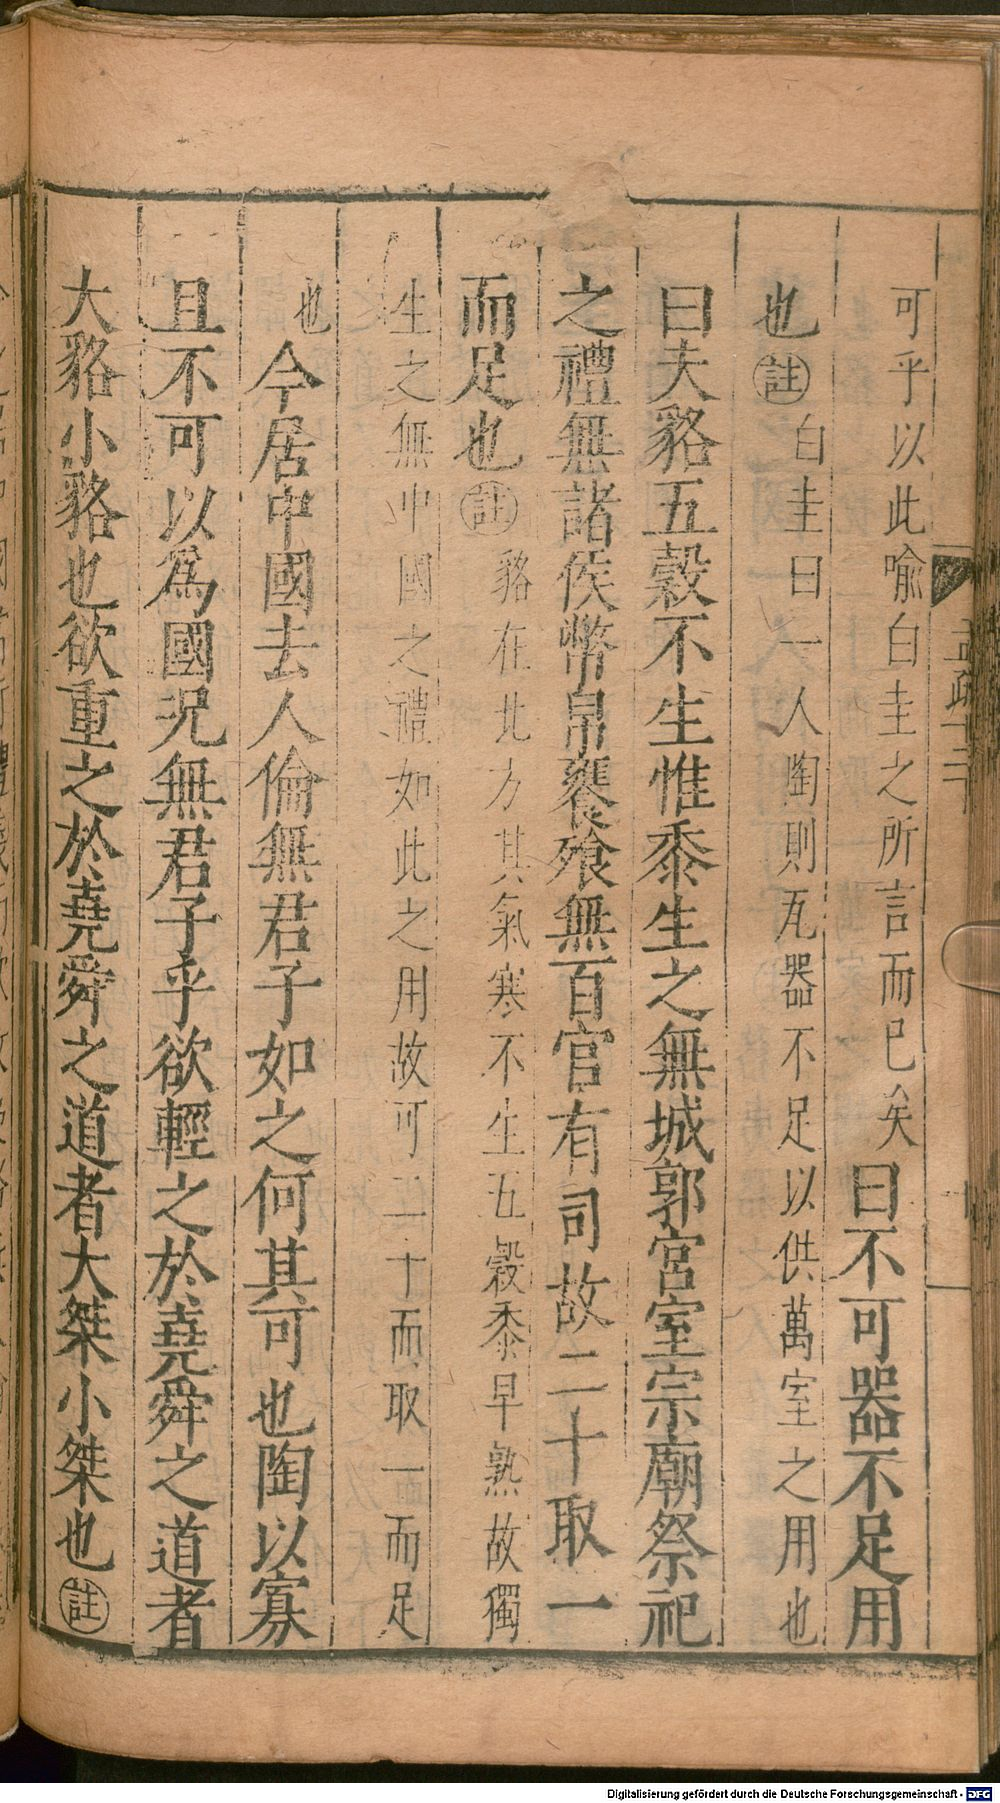 可乎以此喻白圭之所言而已矣曰不可器不足用
也註白圭曰一人陶則瓦器不足以供萬室之用也
曰夫貉五穀不生惟黍生之無城郭宮室宗廟祭祀
之禮無諸侯幣帛饔飧無百官有司故二十取一
而足也註貉在北方其氣寒不生五穀黍早熟故獨
生之無中國之禮如此之用故可二十而取一而足
也今居中國去人倫無君子如之何其可也陶以寡
且不可以爲國況無君子乎欲輕之於堯舜之道者
大貉小貉也欲重之於堯舜之道者大桀小桀也註
Digitalisierung gefördert durch die Deutsche Forschungsgemeinschaft - DFG